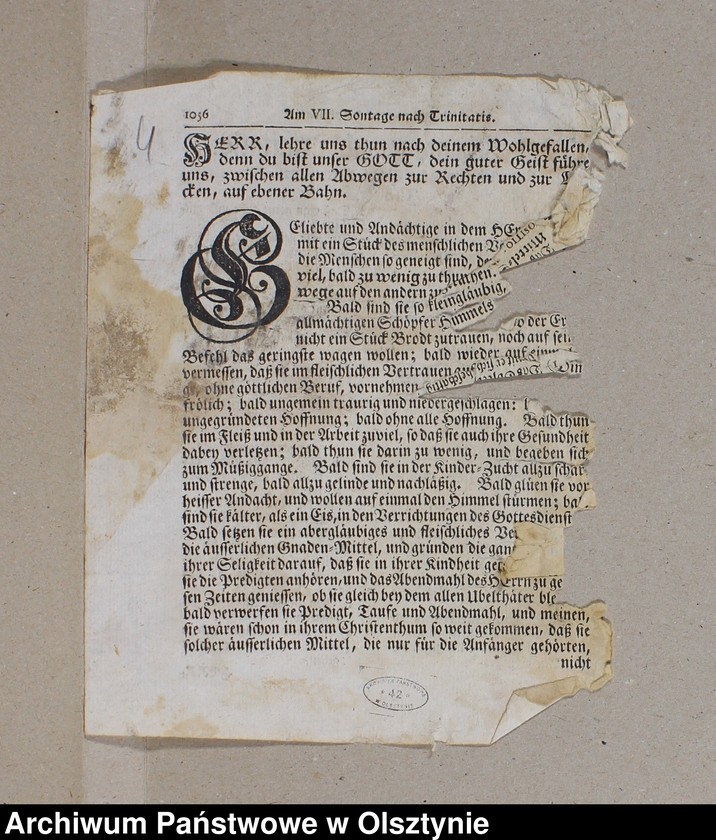 4
1056 Am VII. Sontage nach Trinitatis.
HERR, lehre uns thun nach deinem Wohlgefallen,
denn du bist unser GOTT, dein guter Geist führe
uns, zwischen allen Abwegen zur Rechten und zur
cken, auf ebener Bahn.
GEliebte und Andächtige in dem HE
mit ein Stück des menschlichen V
die Menschen so geneigt sind,
viel, bald zu wenig zu thun
wege auf den andern zu
Bald sind sie so kleingläubig,
allmächtigen Schöpfer Himmels der Er
nicht ein Stück Brodt zutrauen, noch auf sein
Befehl das geringste wagen wollen; bald wieder auf
vermessen, daß sie im fleischlichen Vertrauen
ohne göttlichen Beruf, vornehmen
frölich; bald ungemein traurig und niedergeschlagen:
ungegründeten Hoffnung; bald ohne alle Hoffnung. Bald thun
sie im Fleiß und in der Arbeit zuviel, so daß sie auch ihre Gesundheit
dabey verletzen; bald thun sie darin zu wenig, und begeben sich
zum Müßiggange. Bald sind sie in der Kinder-Zucht allzu schar
und strenge, bald allzu gelinde und nachläßig. Bald glüen sie vor
heisser Andacht, und wollen auf einmal den Himmel stürmen; ba
sind sie kälter, als ein Eis, in den Verrichtungen des Gottesdienst
Bald setzen sie ein abergläubiges und fleischliches Ver
die äusserlichen Gnaden-Mittel, und gründen die gan
ihrer Seligkeit darauf, daß sie in ihrer Kindheit get
sie die Predigten anhören, und das Abendmahl des HErrn zu ge
sen Zeiten geniessen, ob sie gleich bey dem allen Ubelthäter ble
bald verwerfen sie Predigt, Taufe und Abendmahl, und meinen,
sie wären schon in ihrem Christenthum so weit gekommen, daß sie
solcher äusserlichen Mittel, die nur für die Anfänger gehörten,
nicht
ARCHIWUM PAŃSTWOWE
* 42 *
W OLSZTYNIE
Archiwum Państwowe w Olsztynie